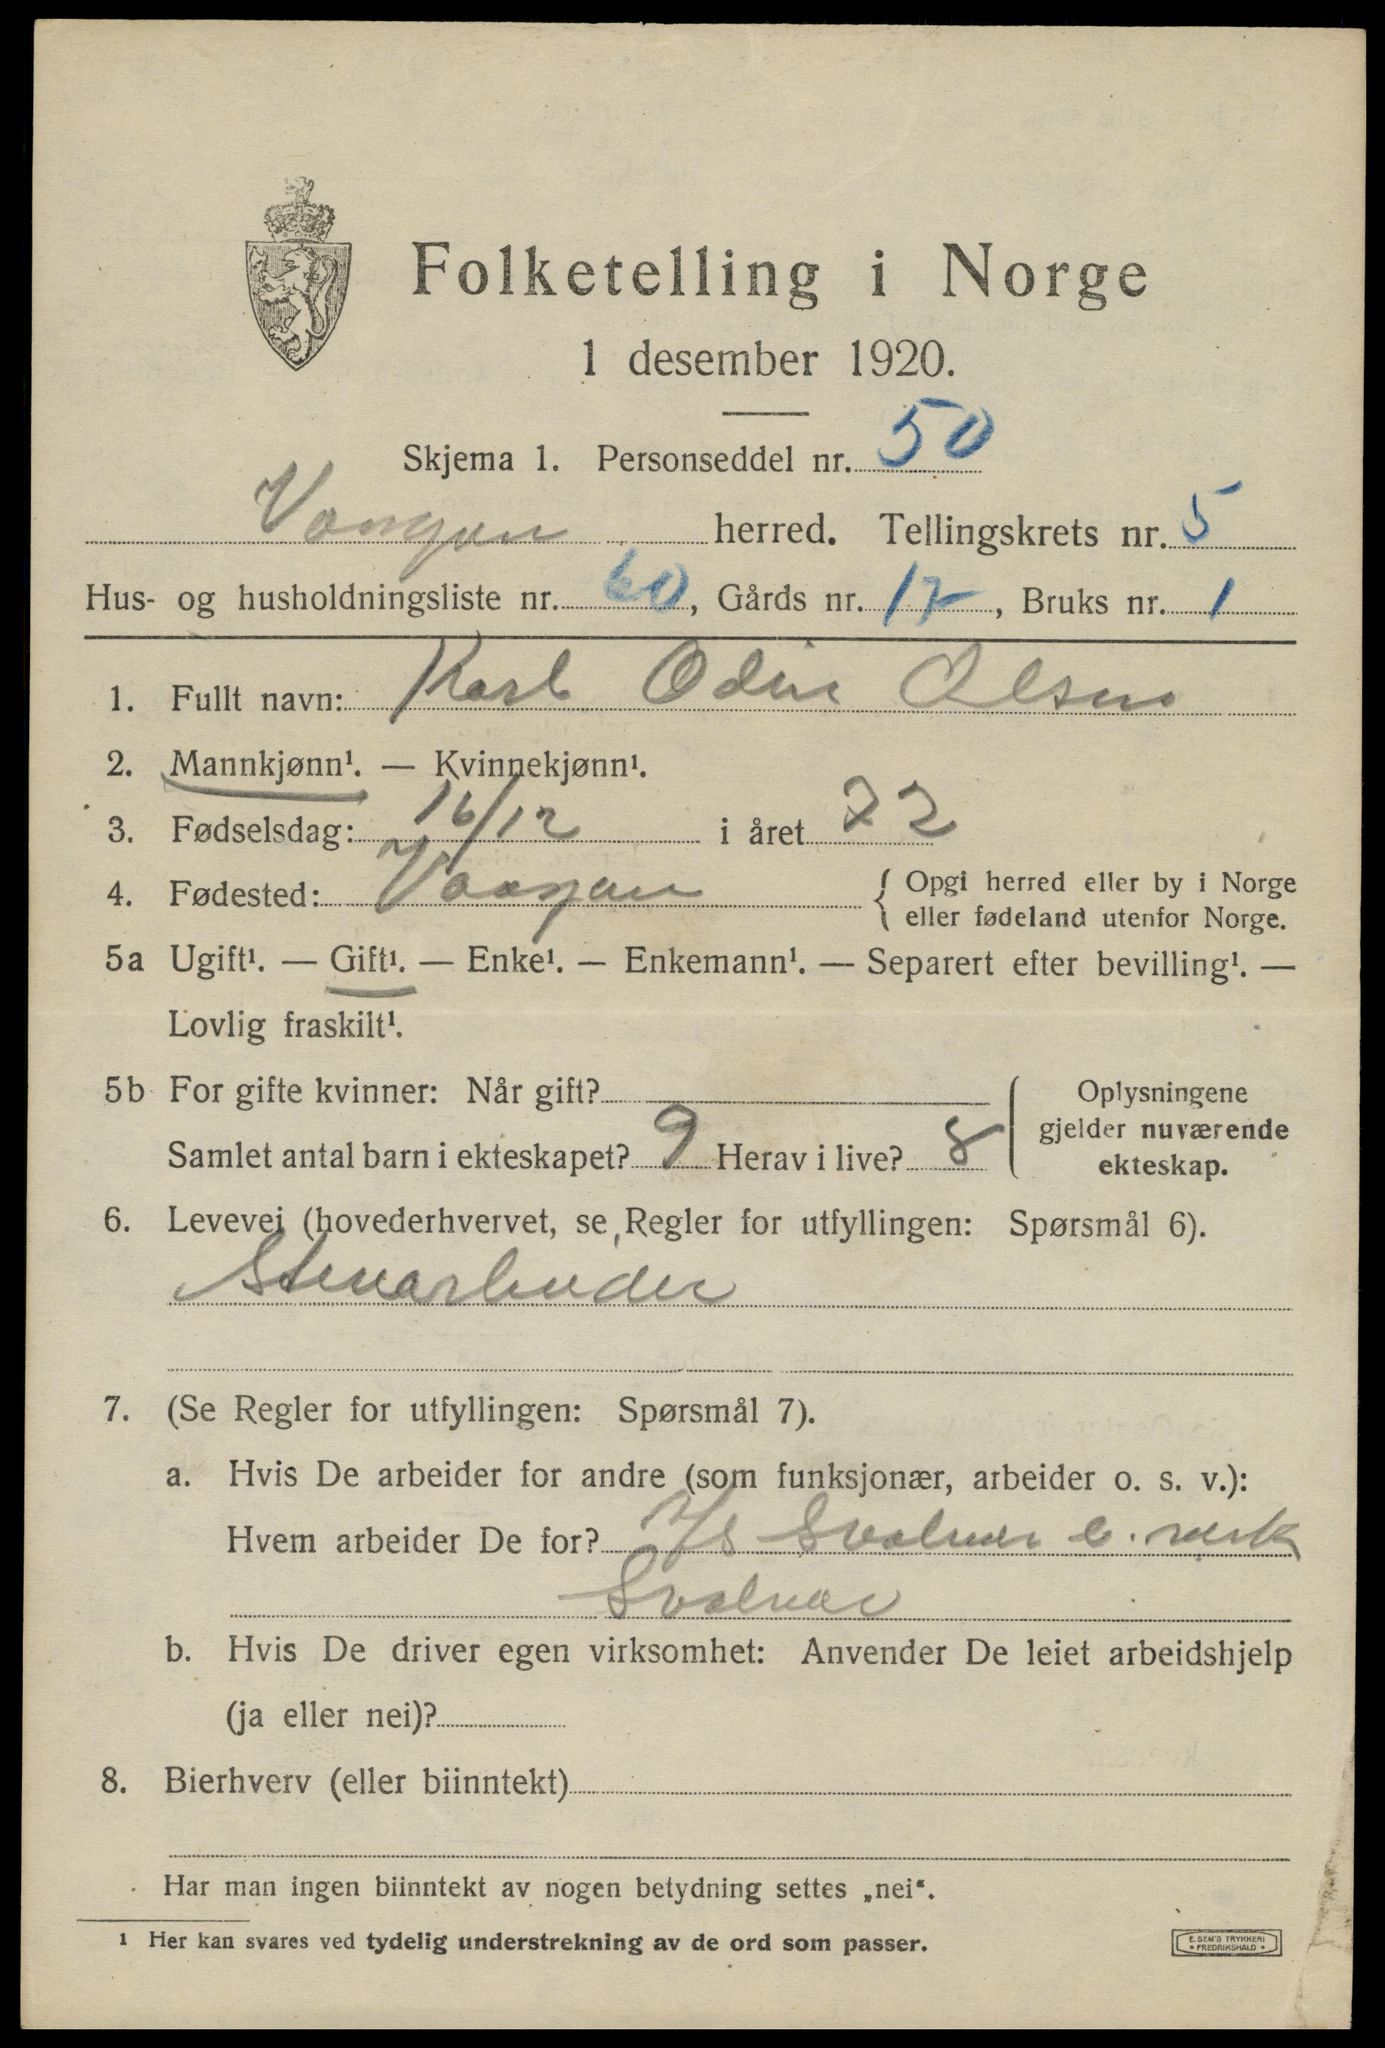 Folketelling i Norge
1 desember 1920.
Skjema 1. Personseddel nr. 50
Vaagan herred. Tellingskrets nr. 5
Hus- og husholdningsliste nr. 60, Gårds nr. 17, Bruks nr. 1
1. Fullt navn: Karl Odin Olsen
2. Mannkjønn¹. — Kvinnekjønn¹.
3. Fødselsdag: 16/12 i året 72
4. Fødested: Vaagan { Opgi herred eller by i Norge
eller fødeland utenfor Norge.
5a Ugift¹. — Gift¹. — Enke¹. — Enkemann¹. — Separert efter bevilling¹. —
Lovlig fraskilt¹.
5b For gifte kvinner: Når gift?
Samlet antal barn i ekteskapet? 9 Herav i live? 8
Oplysningene
gjelder nuværende
ekteskap.
6. Levevei (hovederhvervet, se Regler for utfyllingen: Spørsmål 6).
Stenarbeider
7. (Se Regler for utfyllingen: Spørsmål 7).
a. Hvis De arbeider for andre (som funksjonær, arbeider o. s. v.):
Hvem arbeider De for? Svolvær e. verk
Svolvær
b. Hvis De driver egen virksomhet: Anvender De leiet arbeidshjelp
(ja eller nei)?
8. Bierhverv (eller biinntekt)
Har man ingen biinntekt av nogen betydning settes „nei“.
1 Her kan svares ved tydelig understrekning av de ord som passer.
E. SEM'S TRYKKERI
* FREDRIKSHALD *